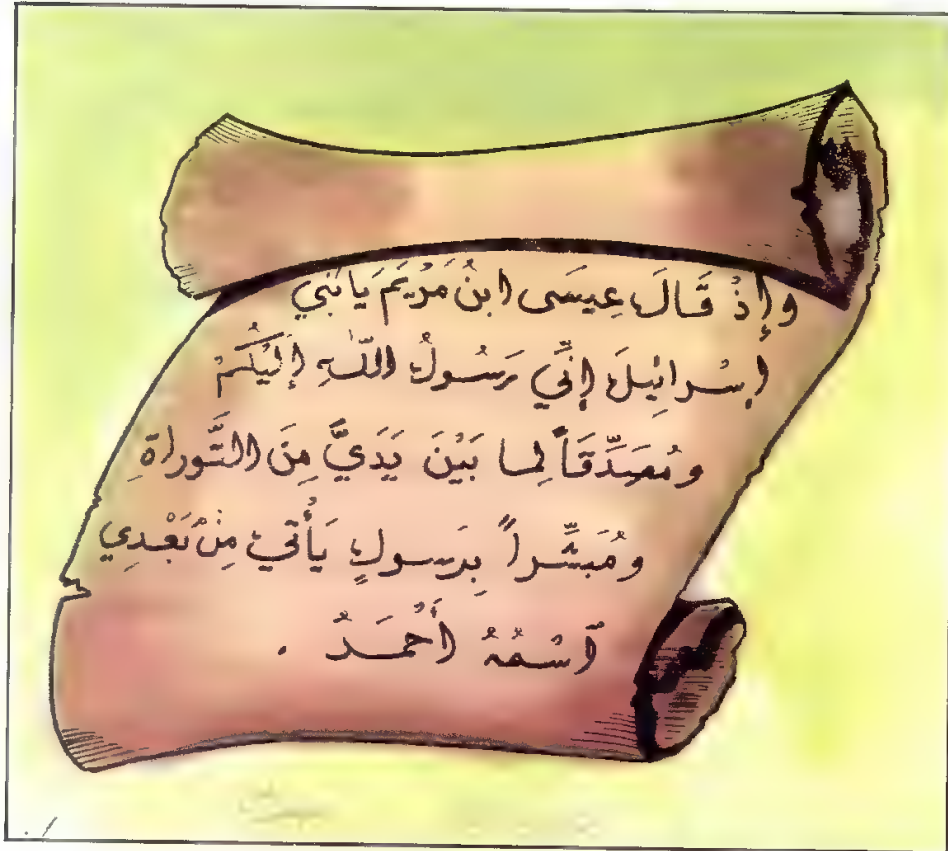 وإِذْ قَالَ عِيسَى ابنُ مَرْيَمَ يَا بَني
إِسْرائِيلَ إِنِّي رَسُولُ اللَّهِ إِلَيْكُمْ
ومُصَدِّقَاً لِما بَيْنَ يَدَيَّ مِنَ التَّوراةِ
ومُبَشِّراً بِرَسولٍ يَأْتي مِنْ بَعْدِي
ٱسْمُهُ أَحْمَدُ .